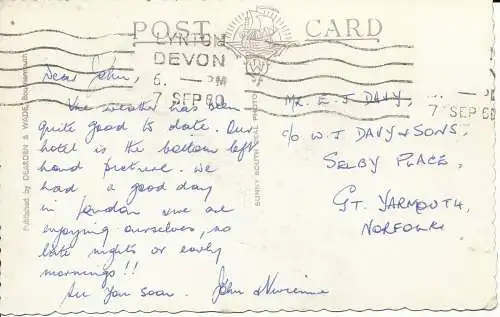 POST CARD
LYNTON
DEVON
6. — PM
7 SEP 60
7 SEP 60
Published by DEARDEN & WADE, Bournemouth
SUNNY SOUTH REAL PHOTO
Dear John,
The weather has been
quite good to date. Our
hotel is the bottom left
hand picture. We
had a good day
in London we are
enjoying ourselves, no
late nights or early
mornings!!
See You soon. John & Vivienne
Mr. E. J. DAVY,
c/o W. J DAVY & SONS,
SELBY PLACE,
GT. YARMOUTH,
NORFOLK